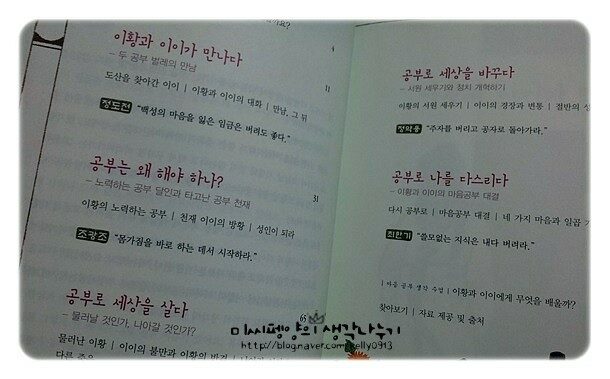 이황과 이이가 만나다
- 두 공부 벌레의 만남
도산을 찾아간 이이 | 이황과 이이의 대화 | 만남, 그 뒤
11
정도전 "백성의 마음을 잃은 임금은 버려도 좋다."
공부는 왜 해야 하나?
- 노력하는 공부 달인과 타고난 공부 천재
31
이황의 노력하는 공부 | 천재 이이의 방황 | 성인이 되라
조광조 "몸가짐을 바로 하는 데서 시작하라."
공부로 세상을 살다
65
- 물러날 것인가, 나아갈 것인가?
물러난 이황 | 이이의 불만과 이황의 반격
공부로 세상을 바꾸다
- 서원 세우기와 정치 개혁하기
이황의 서원 세우기 | 이이의 경장과 변통 | 절반의 성
정약용 "주자를 버리고 공자로 돌아가라."
공부로 나를 다스리다
- 이황과 이이의 마음공부 대결
다시 공부로 | 마음공부 대결 | 네 가지 마음과 일곱 가
최한기 "쓸모없는 지식은 내다 버려라."
| 이황과 이이에게 무엇을 배울까?
찾아보기 | 자료 제공 및 출처
미씨펭양의 생각나누기
http://blog.naver.com/kelly0913